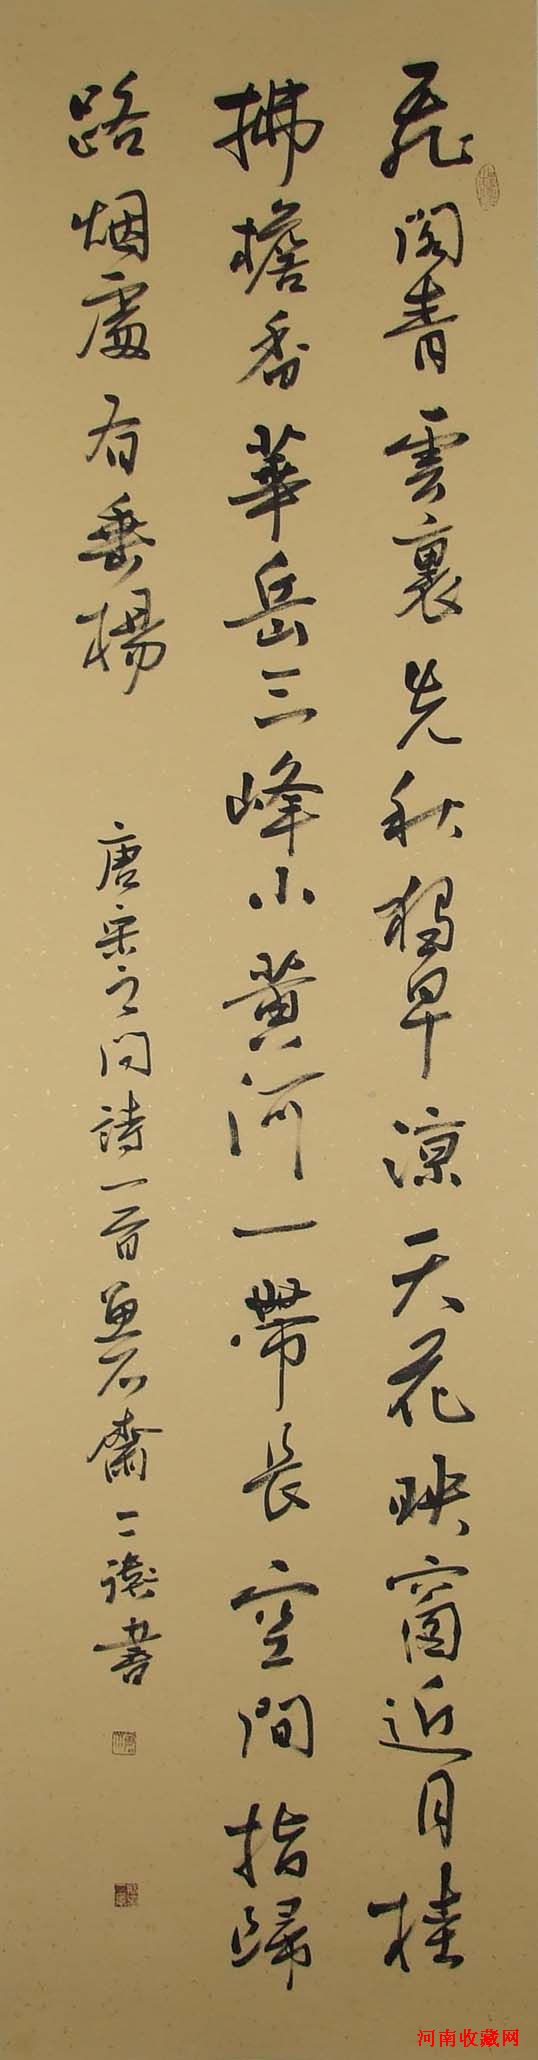 飛閣青雲裏先秋獨早涼天花映窗近月桂
拂檐香華岳三峰小黄河一帶長空間指歸
路烟處有垂楊
唐宋之問詩一首 石齋 書
河南收藏网